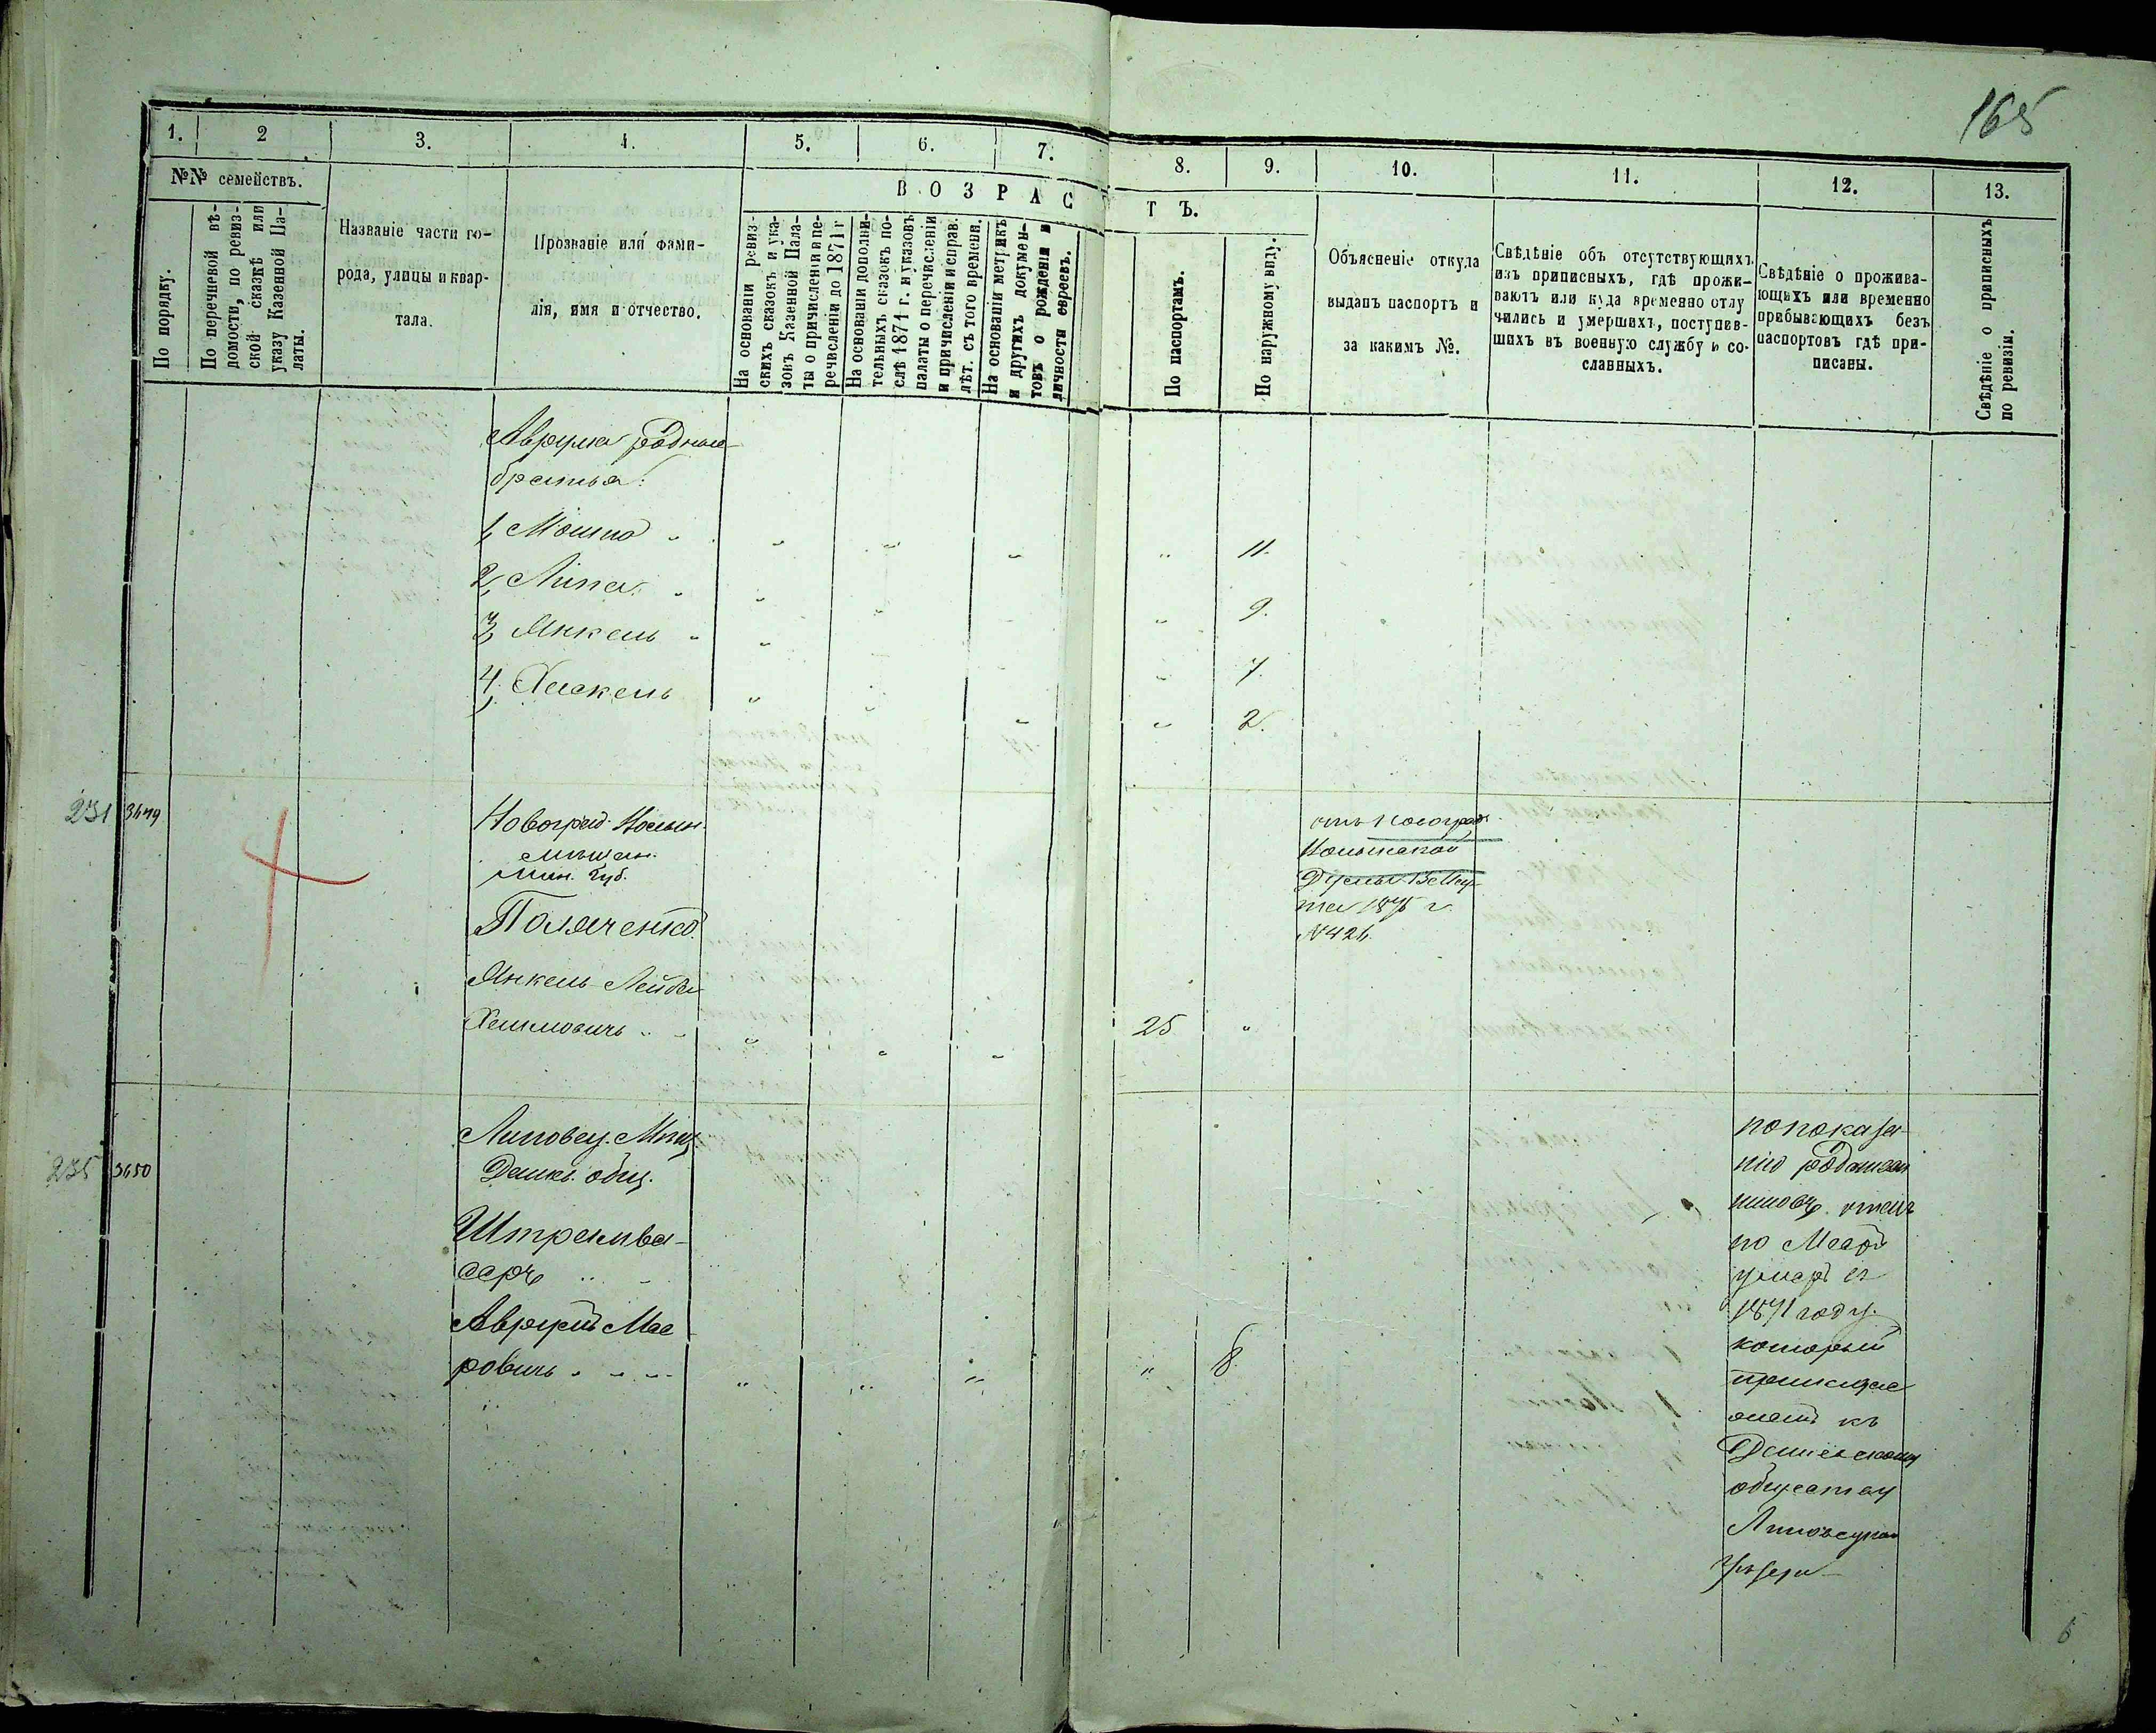 165
1.
2
3.
4.
5.
6.
7.
8.
9.
10.
11.
12.
13.
№№ семействъ.
По порядку.
По перечневой вѣ-
домости, по ревиз-
ской сказкѣ или
указу Казенной Па-
латы.
Названіе части го-
рода, улицы и квар-
тала.
Прозваніе или фами-
лія, имя и отчество.
ВОЗРАС
ТЪ.
На основаніи ревиз-
скихъ сказокъ и ука-
зовъ Казенной Пала-
ты о причисленіи и пе-
речисленіи до 1871 г.
На основаніи дополни-
тельныхъ сказокъ по-
слѣ 1871 г. и указовъ
палаты о перечисленіи
и причисленіи исправ.
лѣт. съ того времени.
На основаніи метрикъ
и другихъ докумен-
товъ о рожденіи и
личности евреевъ.
По паспортамъ.
По наружному виду.
Объясненіе откуда
выданъ паспортъ и
за какимъ №.
Свѣдѣніе объ отсутствующихъ
изъ приписныхъ, гдѣ прожи-
ваютъ или куда временно отлу
чились и умершихъ, поступив-
шихъ въ военную службу и со-
сланныхъ.
Свѣдѣніе о прожива-
ющихъ или временно
прибывающихъ безъ
паспортовъ гдѣ при-
писаны.
Свѣдѣніе о приписныхъ
по ревизіи.
Аврума родные
братья:
1, Мошко " " " " " 11.
2, Липа " " " " 9.
3, Янкель " " " 7.
4, Хаскель " " " " 2.
231 3649
Новоград. Волын.
мѣщан.
Поляченко
Янкель-Лейба
Хаимовичъ " " " 25 "
отъ Новоград
Волынской
Думы
1875 г.
№426.
235 3650
Липовец. Мѣщ.
Дашев. общ.
Штрамва-
серъ
Аврумъ Мее-
ровичъ " " " " 8.
по показа-
нію
отецъ
умеръ въ
1871 году.
который
къ
Дашевскому
обществу
Липовецкаго
уѣзда
6